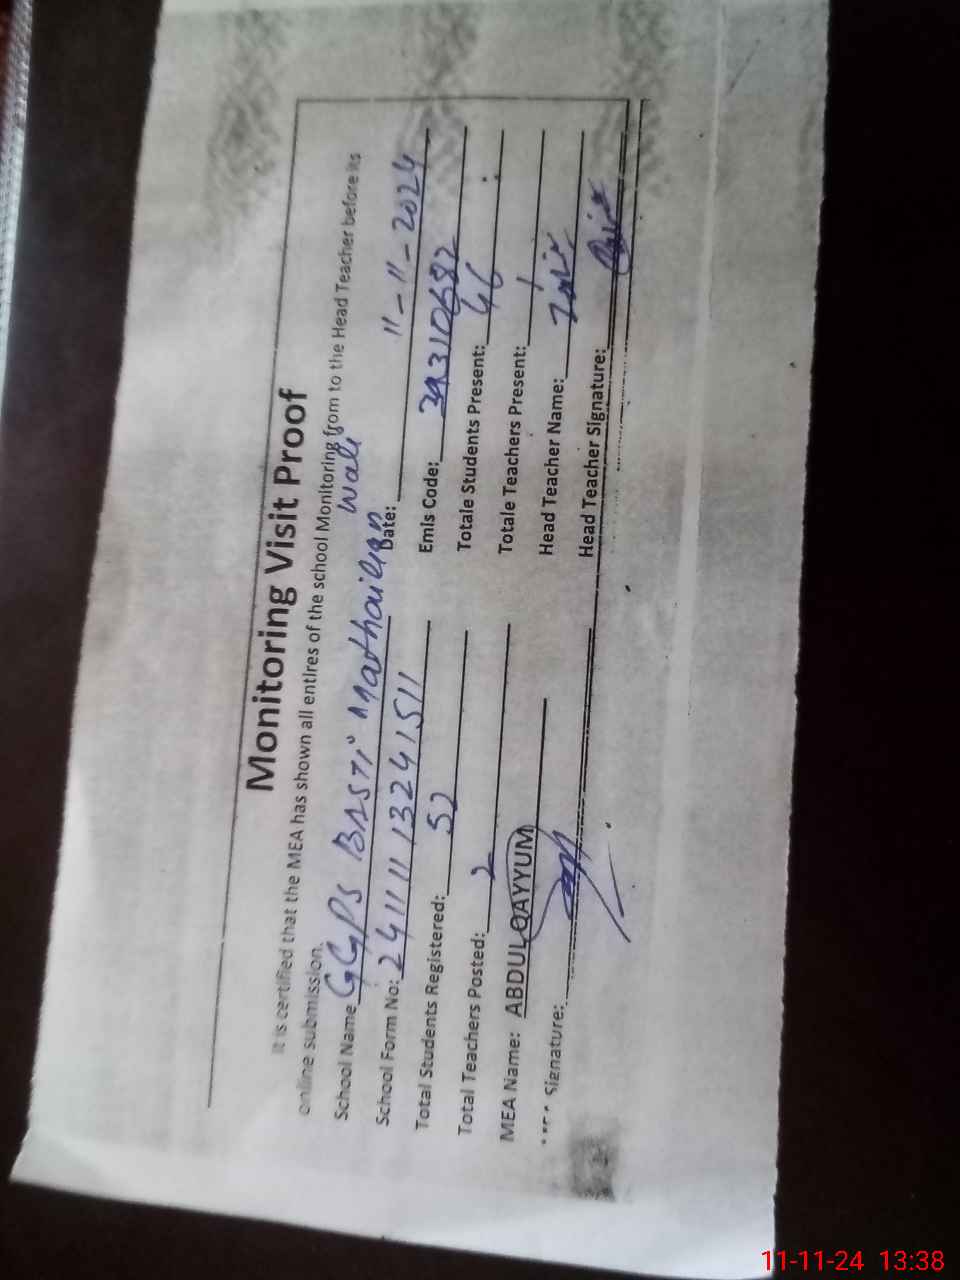 Monitoring Visit Proof
It is certified that the MEA has shown all entires of the school Monitoring from to the Head Teacher before its
online submission.
School Name GGPS BASTI Mathailian wali
School Form No: 24111113241511 Date: 11-11-2024
Total Students Registered: 52 Emis Code: 31310682
Total Teachers Posted: 2 Totale Students Present: 46
MEA Name: ABDULQAYYUM Totale Teachers Present: 1
Signature: Head Teacher Name:
Head Teacher Signature:
11-11-24 13:38